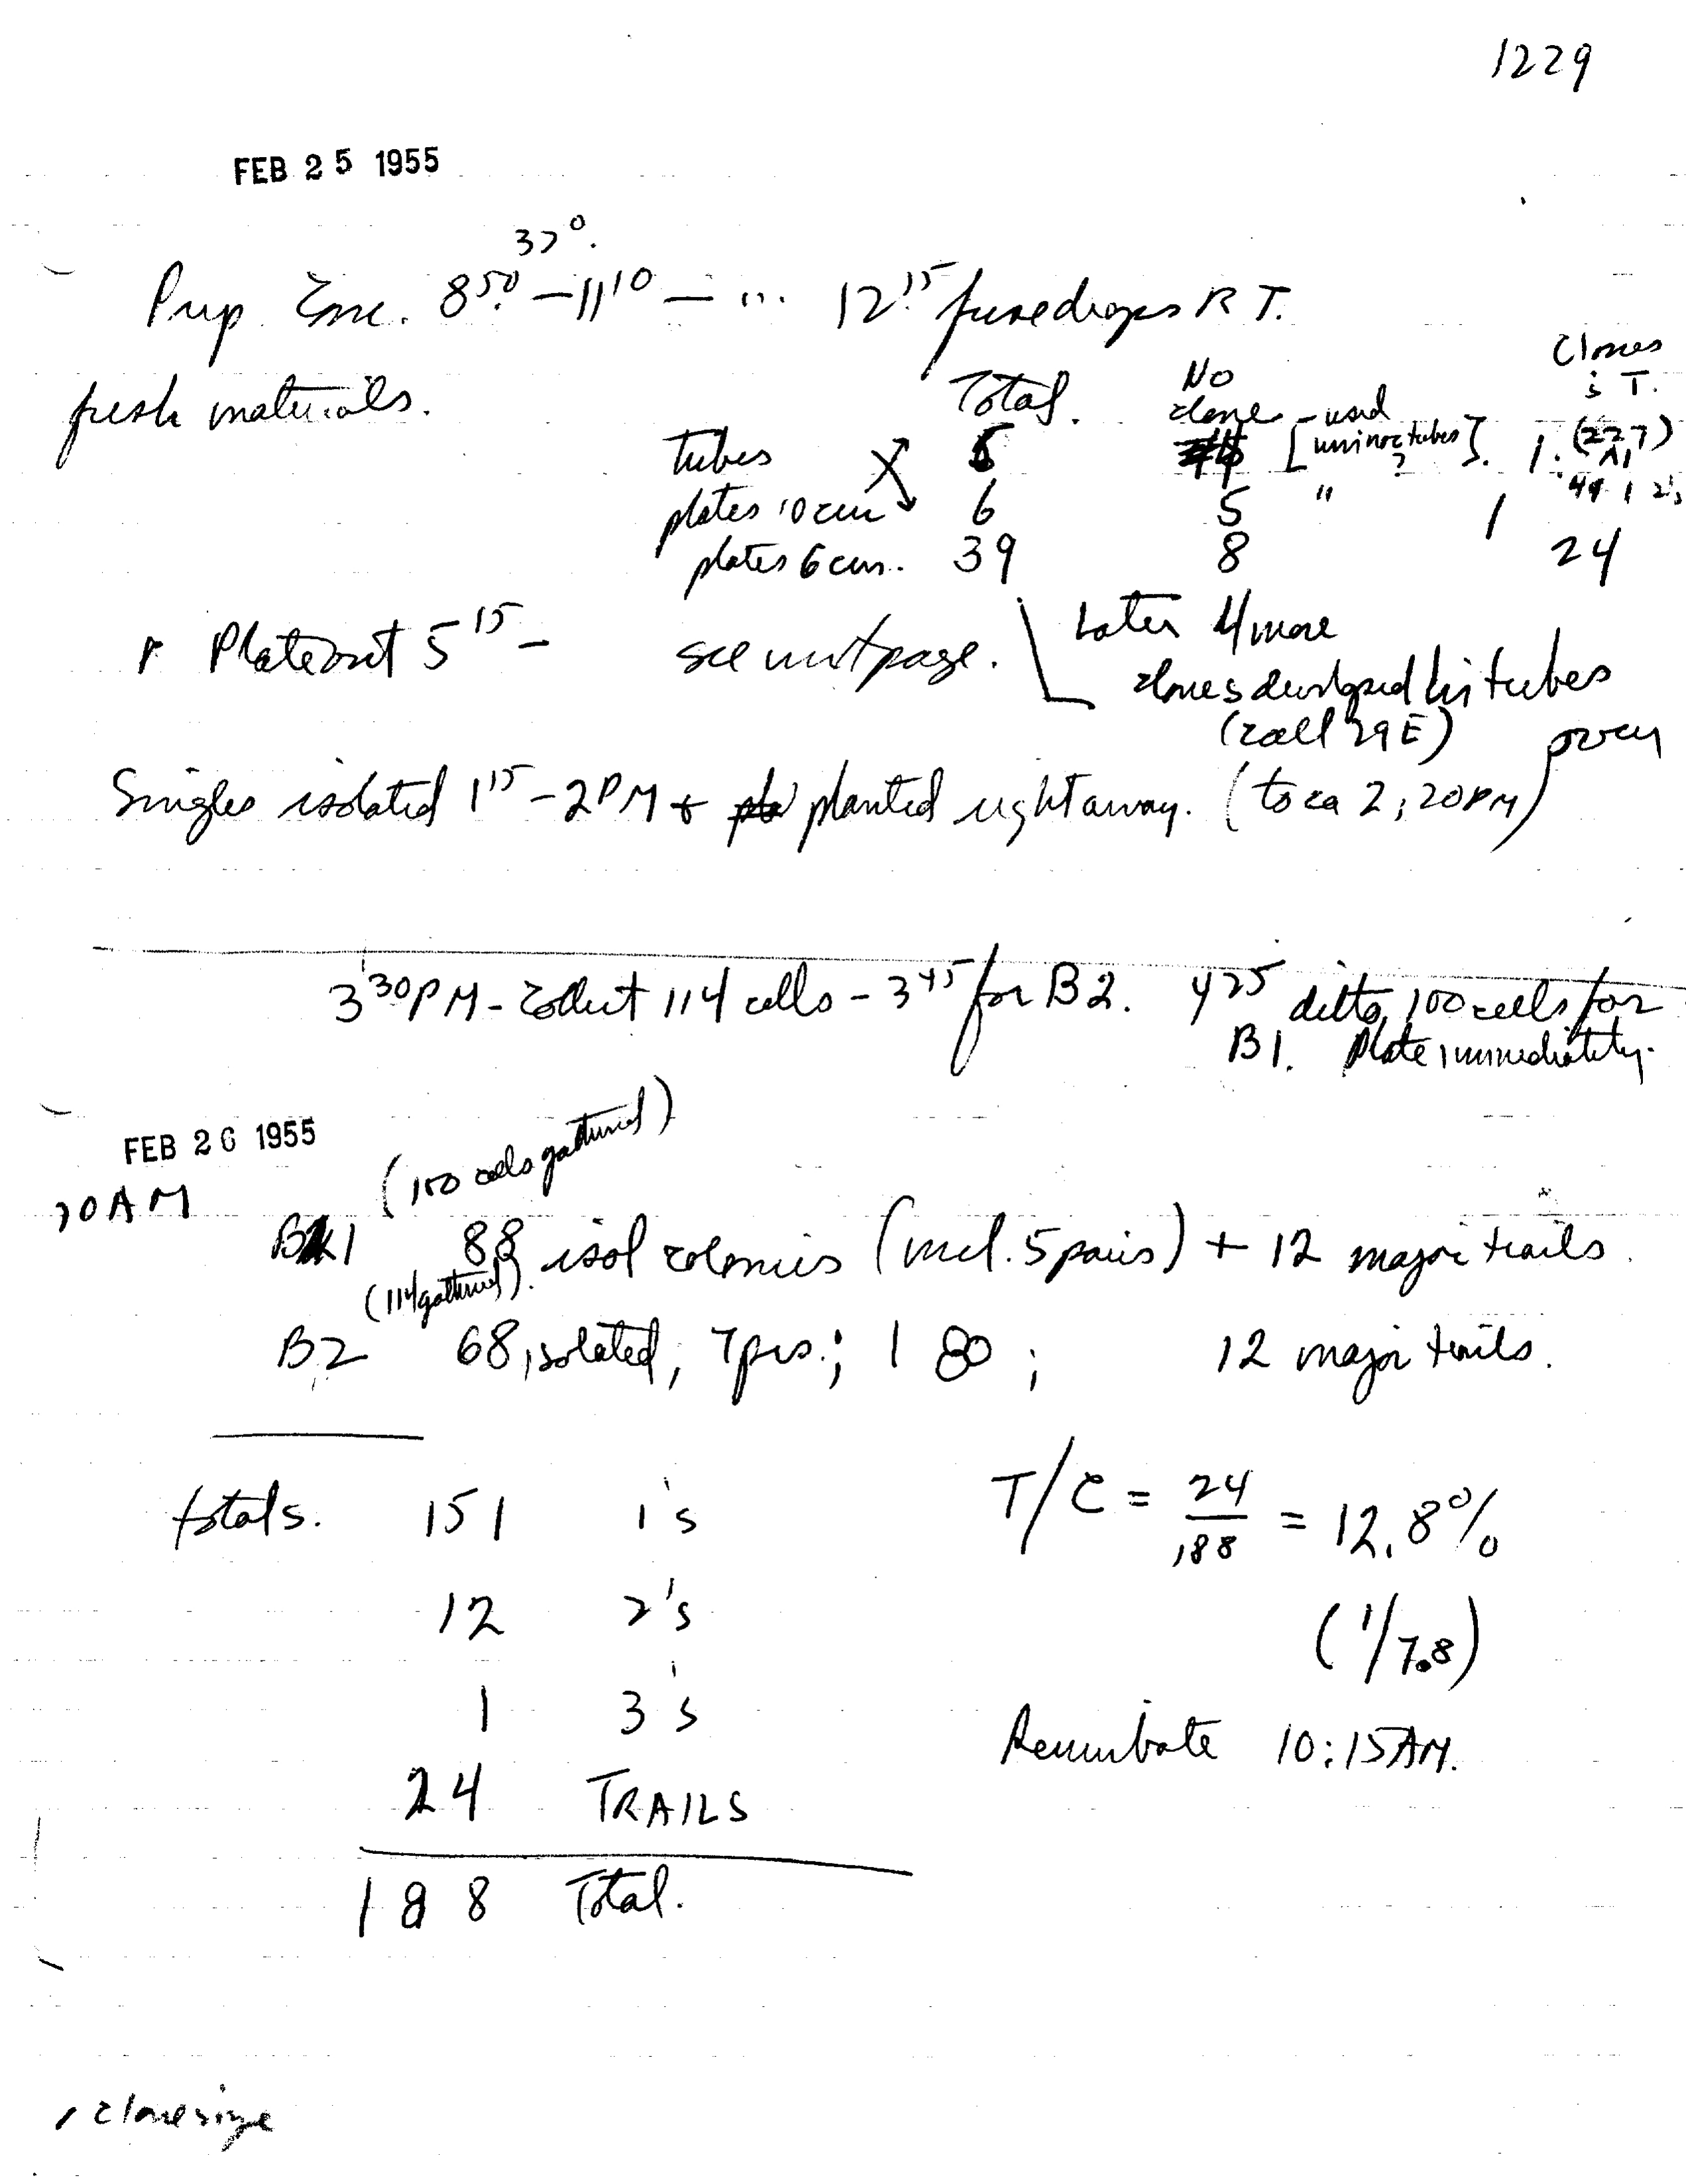 1229
FEB 25 1955
37°.
Prep. Enc. 8 50 — 11 10 — ... 12 15 fuse drops R T.
fresh materials.
Total. No clone Clones s̄ T.
tubes 5 [-used uninoc tubes?]. 1. (227)
plates 10 cm 6 5 " 1
plates 6 cm. 39 8 24
Plate out 5 15 - see next page.
Later 4 more
clones developed in tubes
(call 29E) over
Singles isolated 1 15 - 2 PM + planted right away. (to ca 2:20 PM)
3 30 PM - Collect 114 cells - 3 45 for B2. 4 25 ditto 100 cells for
B1. Plate immediately.
FEB 26 1955
10 AM
(100 cells gathered)
B1 88 isol colonies (incl. 5 pairs) + 12 major trails.
(114 gathered).
B2 68 isolated, 7 prs.; 1 ; 12 major trails.
totals. 151 1's
12 2's
1 3's
24 TRAILS
188 Total.
T/C = 24/188 = 12.8%
(1/7.8)
Reincubate 10:15 AM.
clone size